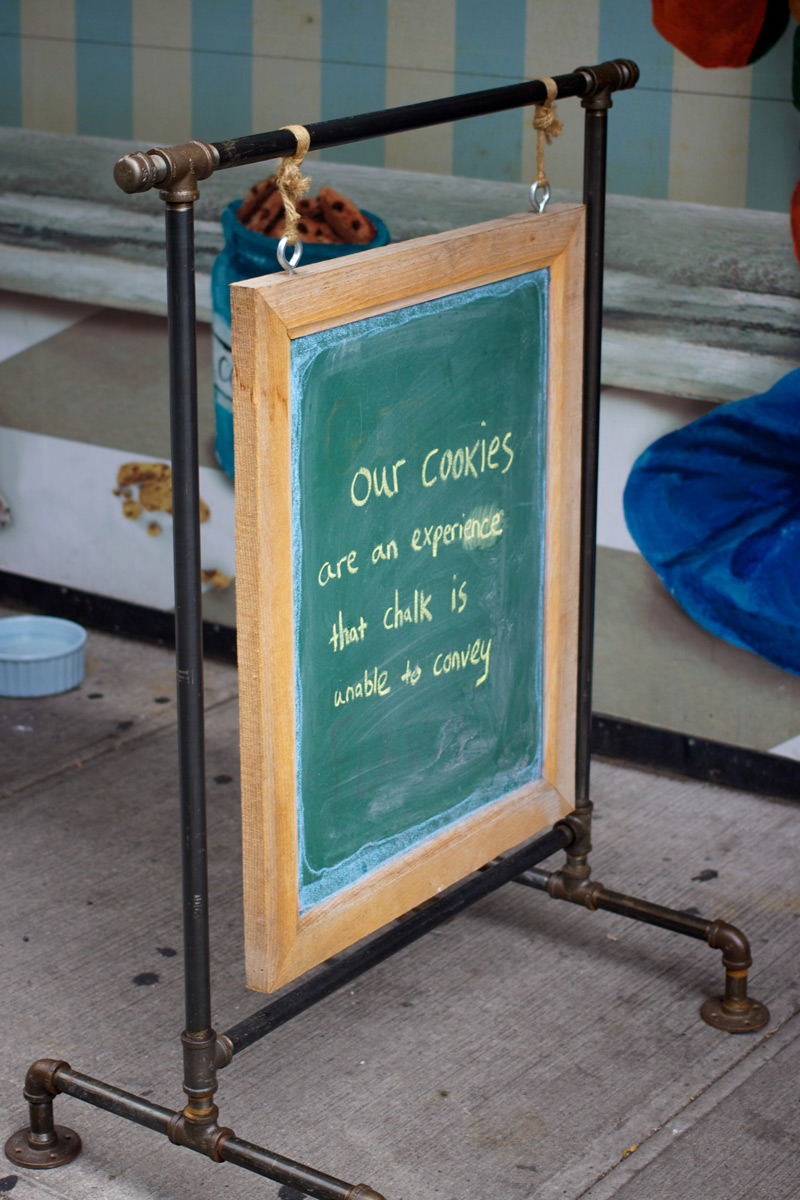 our cookies
are an experience
that chalk is
unable to convey